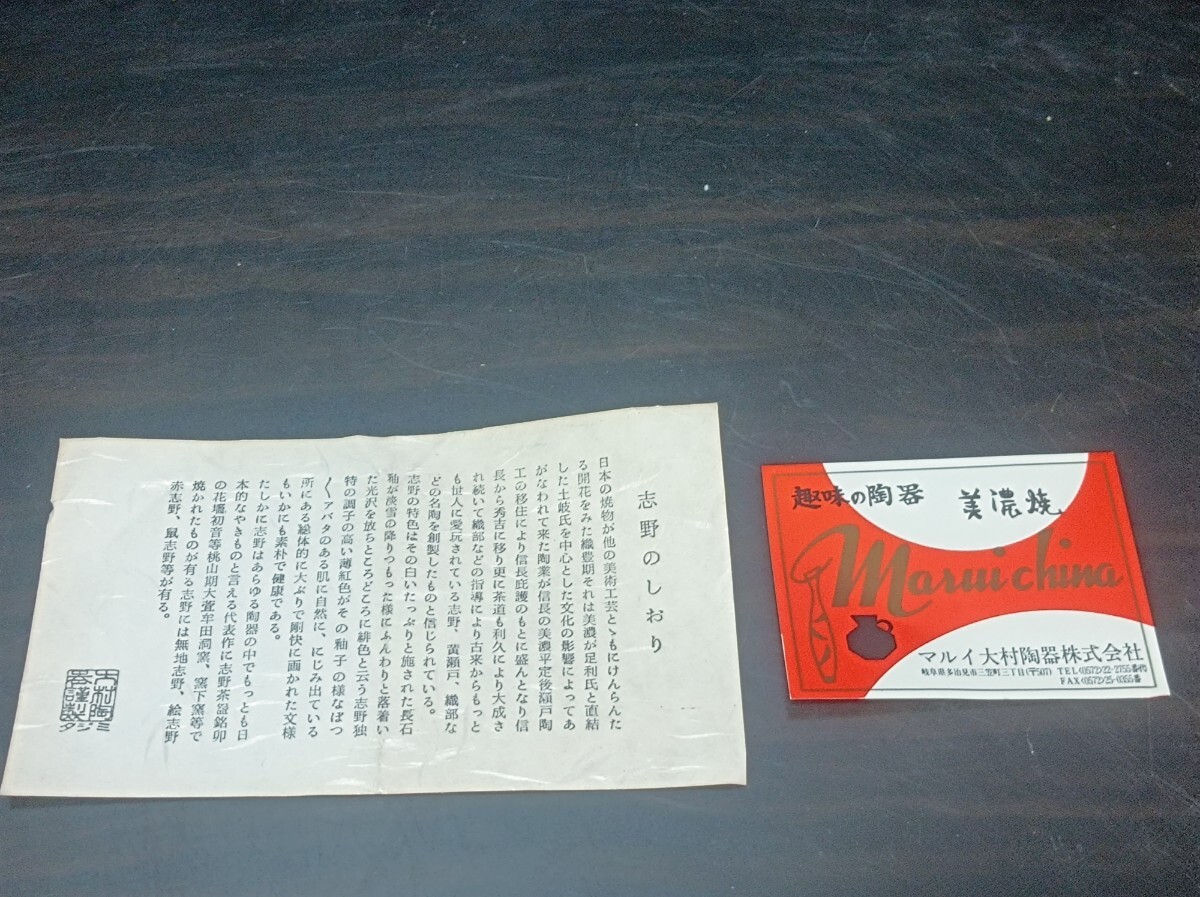 志野のしおり
日本の焼物が他の美術工芸とゝもにけんらんた
る開花をみた織豊期それは美濃が足利氏と直結
した土岐氏を中心とした文化の影響によってあ
がなわれて来た陶業が信長の美濃平定後瀬戸陶
工の移住により信長庇護のもとに盛んとなり信
長から秀吉に移り更に茶道も利久により大成さ
れ続いて織部などの指導により古来からもっと
も世人に愛玩されている志野、黄瀬戸、織部な
どの名陶を創製したものと信じられている。
志野の特色はその白いたっぷりと施された長石
釉が淡雪の降りつもった様にふんわりと落着い
た光沢を放ちところどころに緋色と云う志野独
特の調子の高い薄紅色がその釉子の様なぼつ
〱アバタのある肌に自然に、にじみ出ている
所にある絵体的に大ぶりで剛快に画かれた文様
もいかにも素朴で健康である。
たしかに志野はあらゆる陶器の中でもっとも日
本的なやきものと言える代表作に志野茶盌銘卯
の花墻初音等桃山期大萱牟田洞窯、窯下窯等で
焼かれたものが有る志野には無地志野、絵志野
赤志野、鼠志野等が有る。
趣味の陶器 美濃焼
Marui china
マルイ大村陶器株式会社
岐阜県多治見市三笠町三丁目(〒507) TEL(0572)22-2755番代
FAX(0572)25-0355番